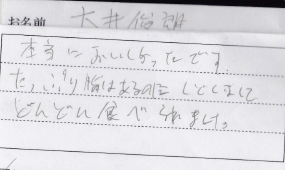 お名前 大井俊朗
本当においしかったです
たっぷり脂はあるのに しつこくなくて
どんどん食べれます。